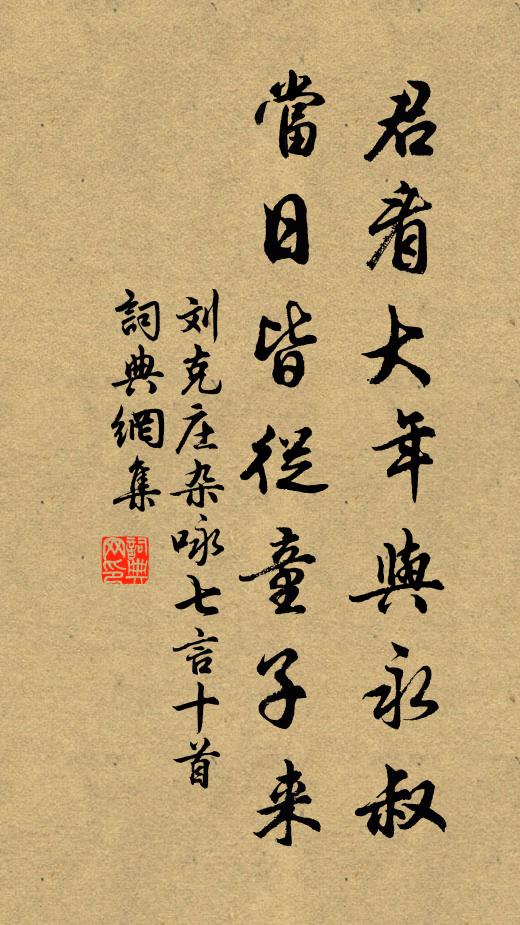 君看大年與永叔
當日皆從童子来
刘克庄杂咏七言十首
詞典網集
詞典网印